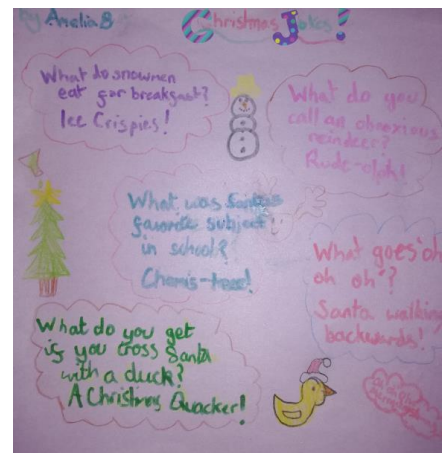 by Amelia B
Christmas Jokes!
What do snowmen
eat for breakfast?
Ice Crispies!
What do you
call an obnoxious
reindeer?
Rude-olph!
What was Santa's
favorite subject
in school?
Chemis-tree!
What goes "oh
oh oh"?
Santa walking
backwards!
What do you get
if you cross Santa
with a duck?
A Christmas Quacker!